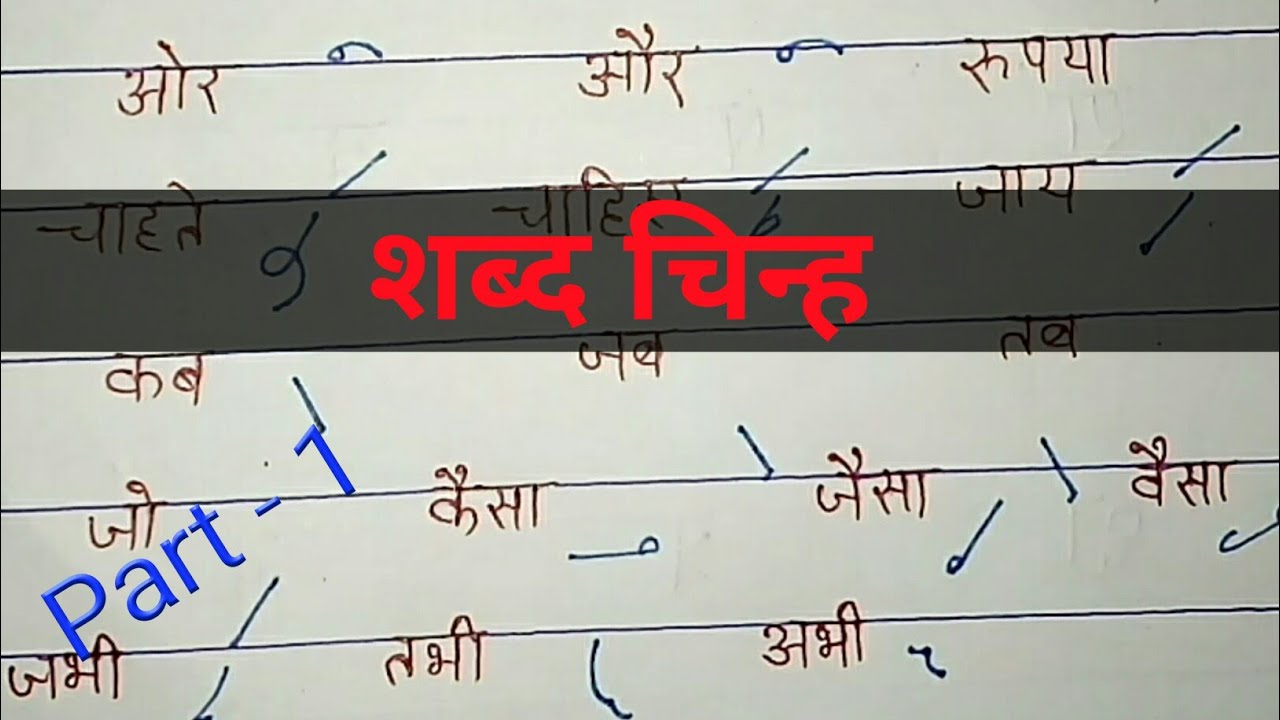 ओर और रुपया
चाहते चाहिए जाय
शब्द चिन्ह
कब जब तब
जो कैसा जैसा वैसा
Part - 1
जभी तभी अभी